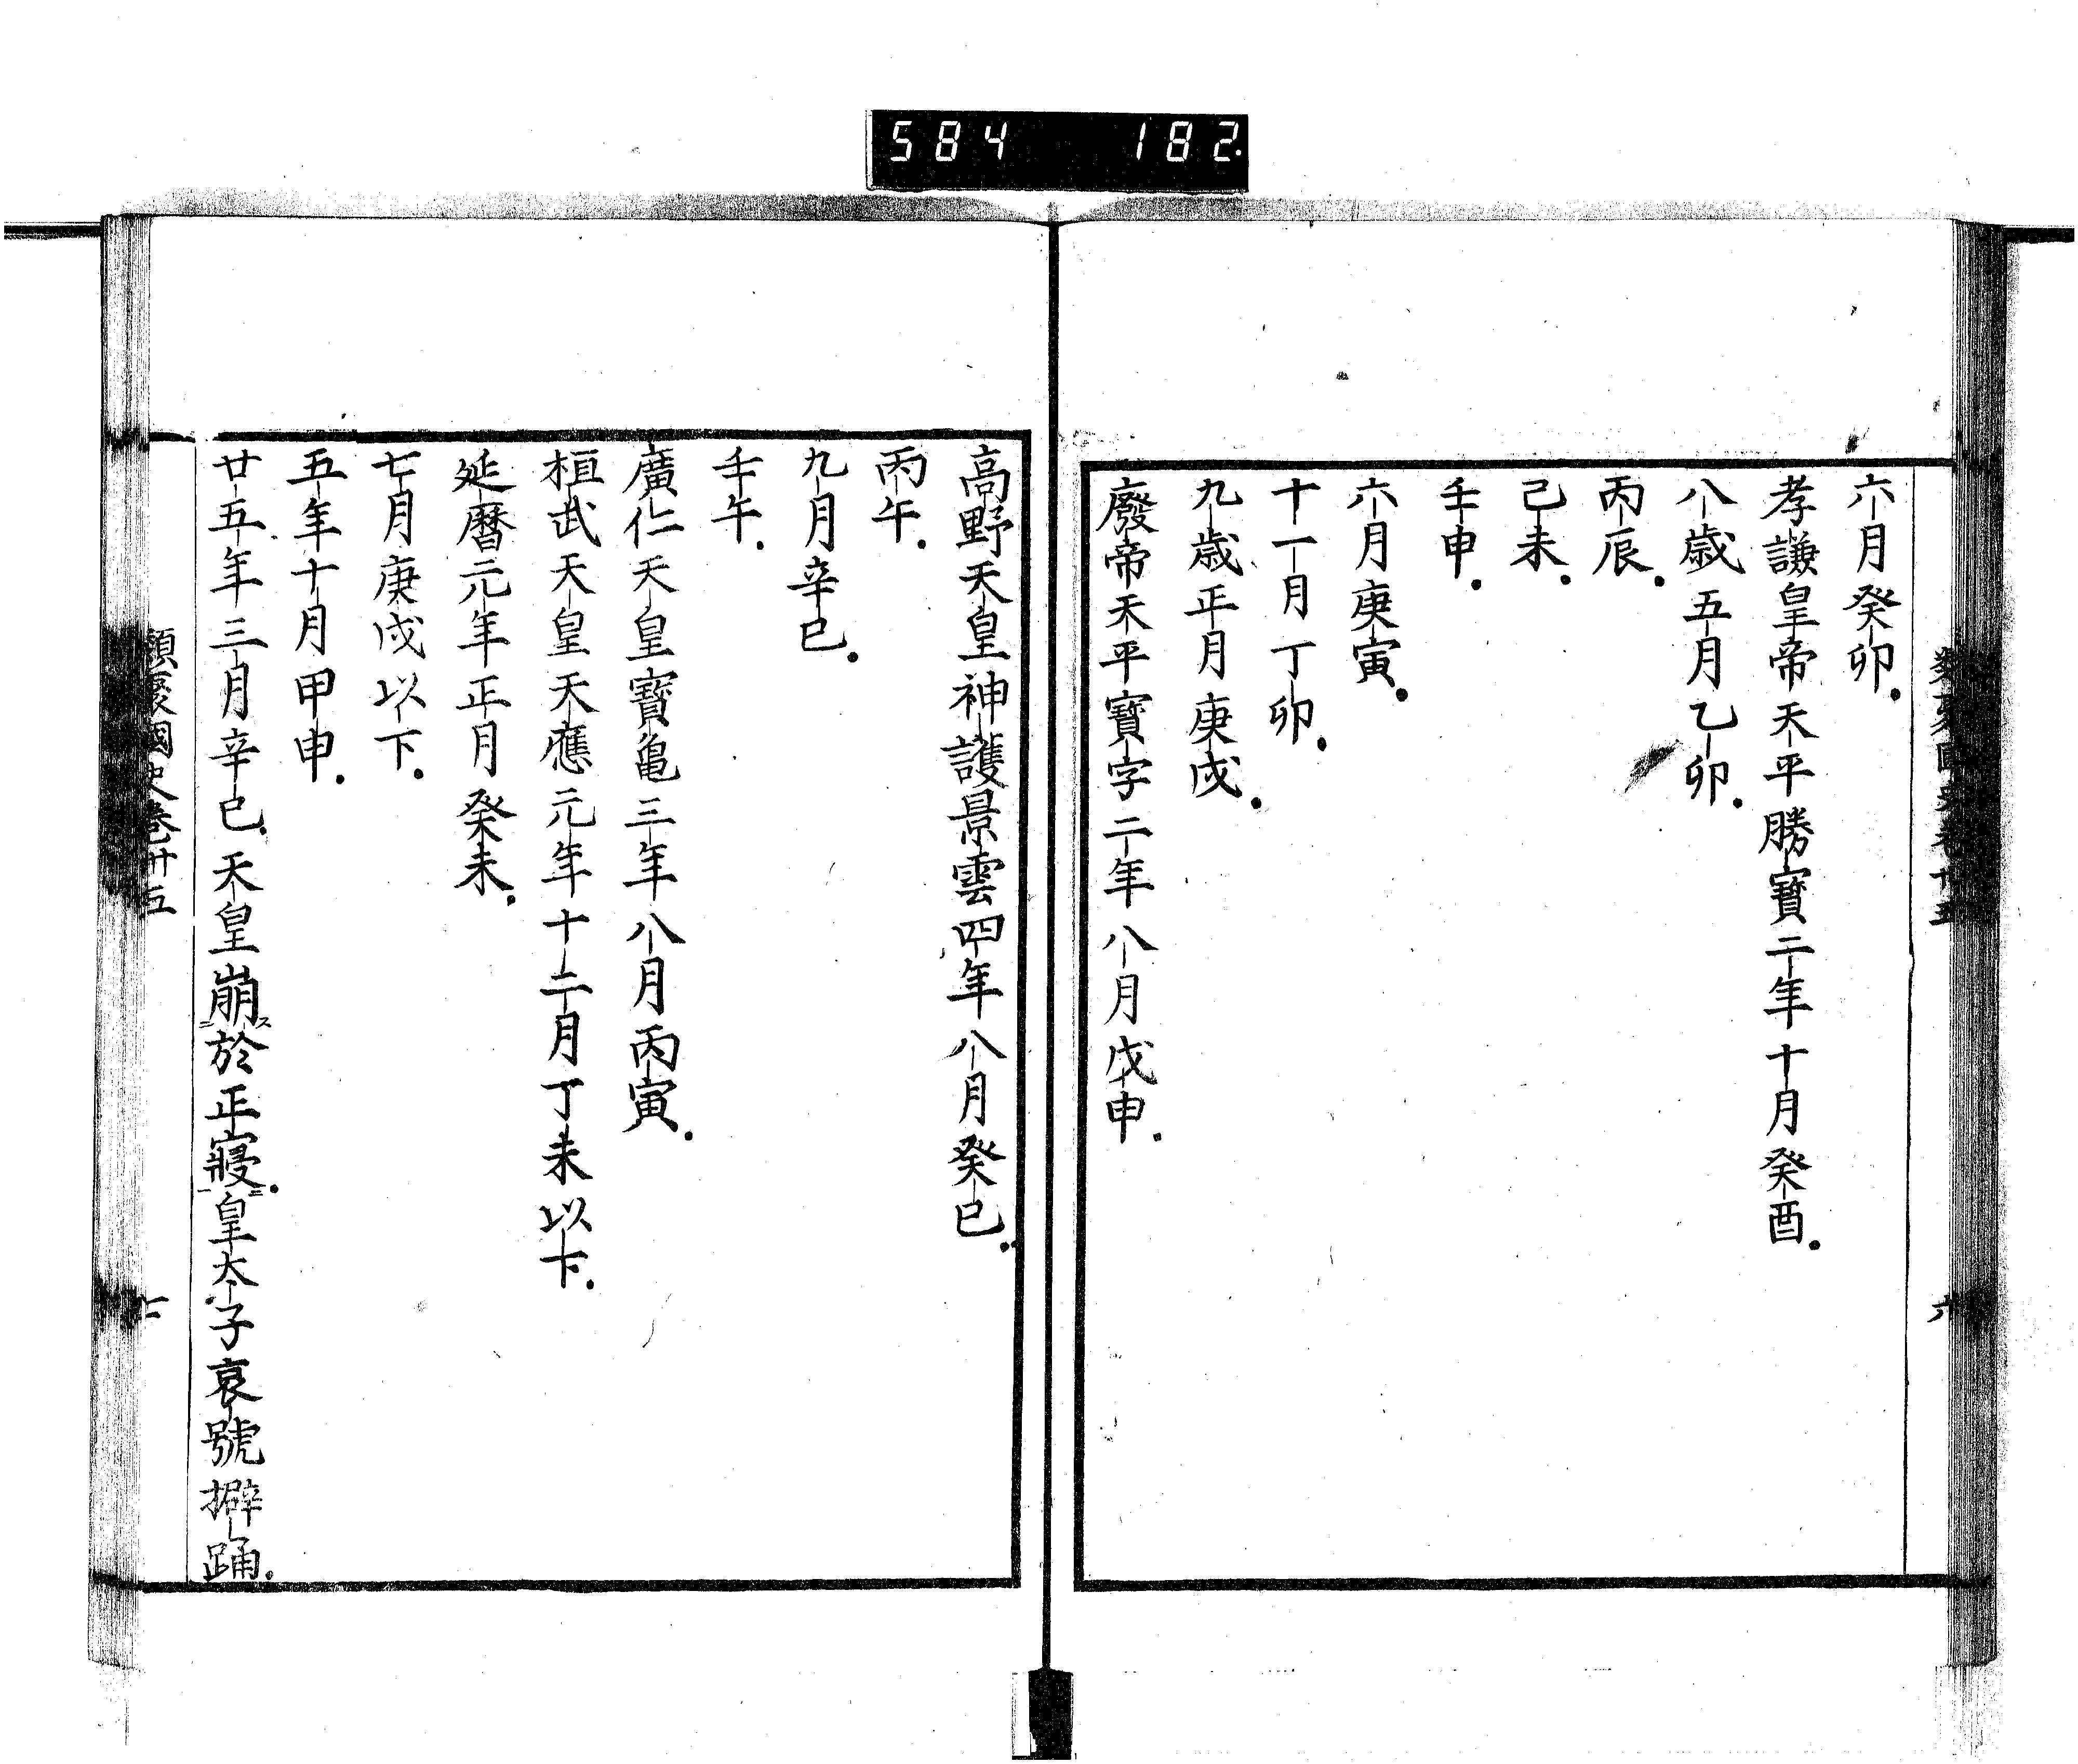 584 182
六月癸卯.
孝謙皇帝天平勝寶二年十月癸酉.
八歳五月乙卯.
丙辰.
己未.
壬申.
六月庚寅.
十一月丁卯.
九歳正月庚戌.
廢帝天平寶字二年八月戊申.
六
高野天皇神護景雲四年八月癸巳.
丙午.
九月辛巳.
壬午.
廣仁天皇寶亀三年八月丙寅.
桓武天皇天應元年十二月丁未以下.
延曆元年正月癸未.
七月庚戌以下.
五年十月甲申.
廿五年三月辛巳.天皇崩於正寢.皇太子哀號擗踊.
類聚國史卷卅五
七